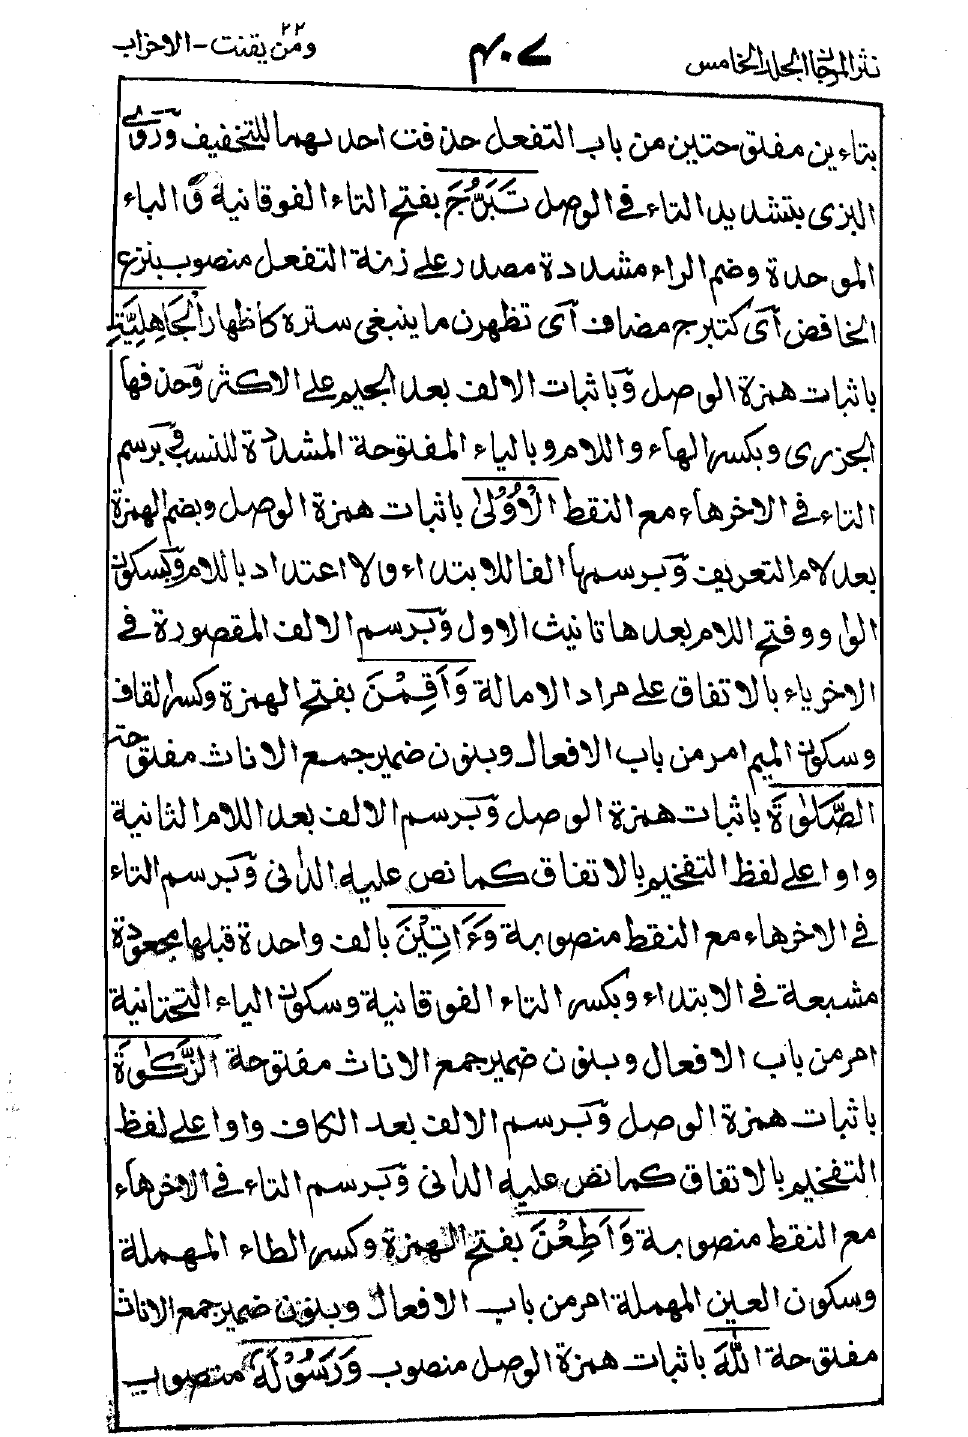 نثر المرجان الجلد الخامس
٤٠٧
ومن يقنت ٢٢ - الاحزاب
بتاءين مفتوحتين من باب التفعل حذفت احدىهما للتخفيف وروى
البزى بتشديد التاء فى الوصل تَبَرُّجَ بفتح التاء الفوقانية و الباء
الموحدة وضم الراء مشددة مصدر على زنة التفعل منصوب بنزع
الخافض اى كتبرج مضاف اى تظهرن ما ينبغى ستره كاظهار الْجَاهِلِيَّةِ
باثبات همزة الوصل وباثبات الالف بعد الجيم على الاكثر وحذفها
الجزرى وبكسر الهاء واللام وبالياء المفتوحة المشددة للنسب وبرسم
التاء فى الاخر هاء مع النقط الْاُوْلىٰ باثبات همزة الوصل وبضم الهمزة
بعد لام التعريف وبرسمها الفا للابتداء ولا اعتداد باللام وبسكون
الواو وفتح اللام بعدها تانيث الاول وبرسم الالف المقصورة فى
الاخر ياء بالاتفاق على مراد الامالة وَاَقِمْنَ بفتح الهمزة وكسر القاف
وسكون الميم امر من باب الافعال وبنون ضمير جمع الاناث مفتوحة
الصَّلٰوةَ باثبات همزة الوصل وبرسم الالف بعد اللام الثانية
واوا على لفظ التفخيم بالاتفاق كما نص عليه الدانى وبرسم التاء
فى الاخر هاء مع النقط منصوبة وَءَاتِيْنَ بالف واحدة قبلها مجعودة
مشبعة فى الابتداء وبكسر التاء الفوقانية وسكون الياء التحتانية
امر من باب الافعال وبنون ضمير جمع الاناث مفتوحة الزَّكٰوةَ
باثبات همزة الوصل وبرسم الالف بعد الكاف واوا على لفظ
التفخيم بالاتفاق كما نص عليه الدانى وبرسم التاء فى الاخر هاء
مع النقط منصوبة وَاَطِعْنَ بفتح الهمزة وكسر الطاء المهملة
وسكون العين المهملة امر من باب الافعال وبنون ضمير جمع الاناث
مفتوحة اللّٰهَ باثبات همزة الوصل منصوب وَرَسُوْلَهٗ منصوب